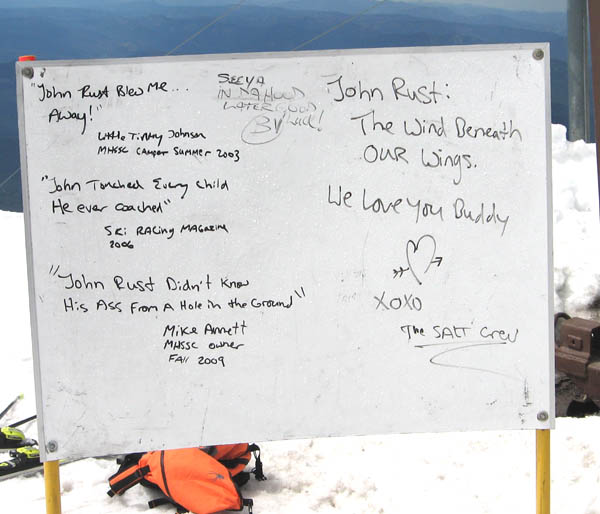 "John Rust Blew Me...
Away!"
Little Timmy Johnson
MHSSC Camper Summer 2003
"John Touched Every Child
He ever coached"
Ski Racing Magazine
2006
"John Rust Didn't Know
His Ass From A Hole in the Ground"
Mike Annett
MHSSC owner
Fall 2009
SEEYA
IN DA HOOD
LATER GOOD
LUCK!
BV
John Rust:
The Wind Beneath
OUR Wings.
We Love You Buddy
XOXO
The SALT Crew